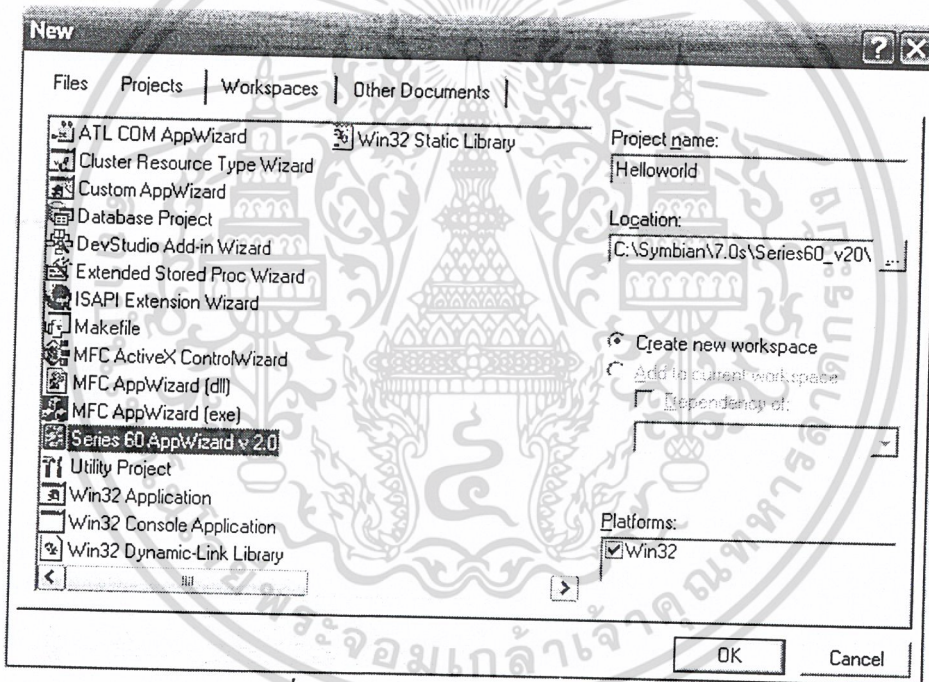 New
Files Projects Workspaces Other Documents
ATL COM AppWizard
Cluster Resource Type Wizard
Custom AppWizard
Database Project
DevStudio Add-in Wizard
Extended Stored Proc Wizard
ISAPI Extension Wizard
Makefile
MFC ActiveX ControlWizard
MFC AppWizard (dll)
MFC AppWizard (exe)
Series 60 AppWizard v 2.0
Utility Project
Win32 Application
Win32 Console Application
Win32 Dynamic-Link Library
Win32 Static Library
Project name:
Helloworld
Location:
C:\Symbian\7.0s\Series60_v20\ ...
Create new workspace
Add to current workspace
Dependency of:
Platforms:
Win32
OK Cancel
พระจอมเกล้าเจ้าคุณทหารลาดกระบัง